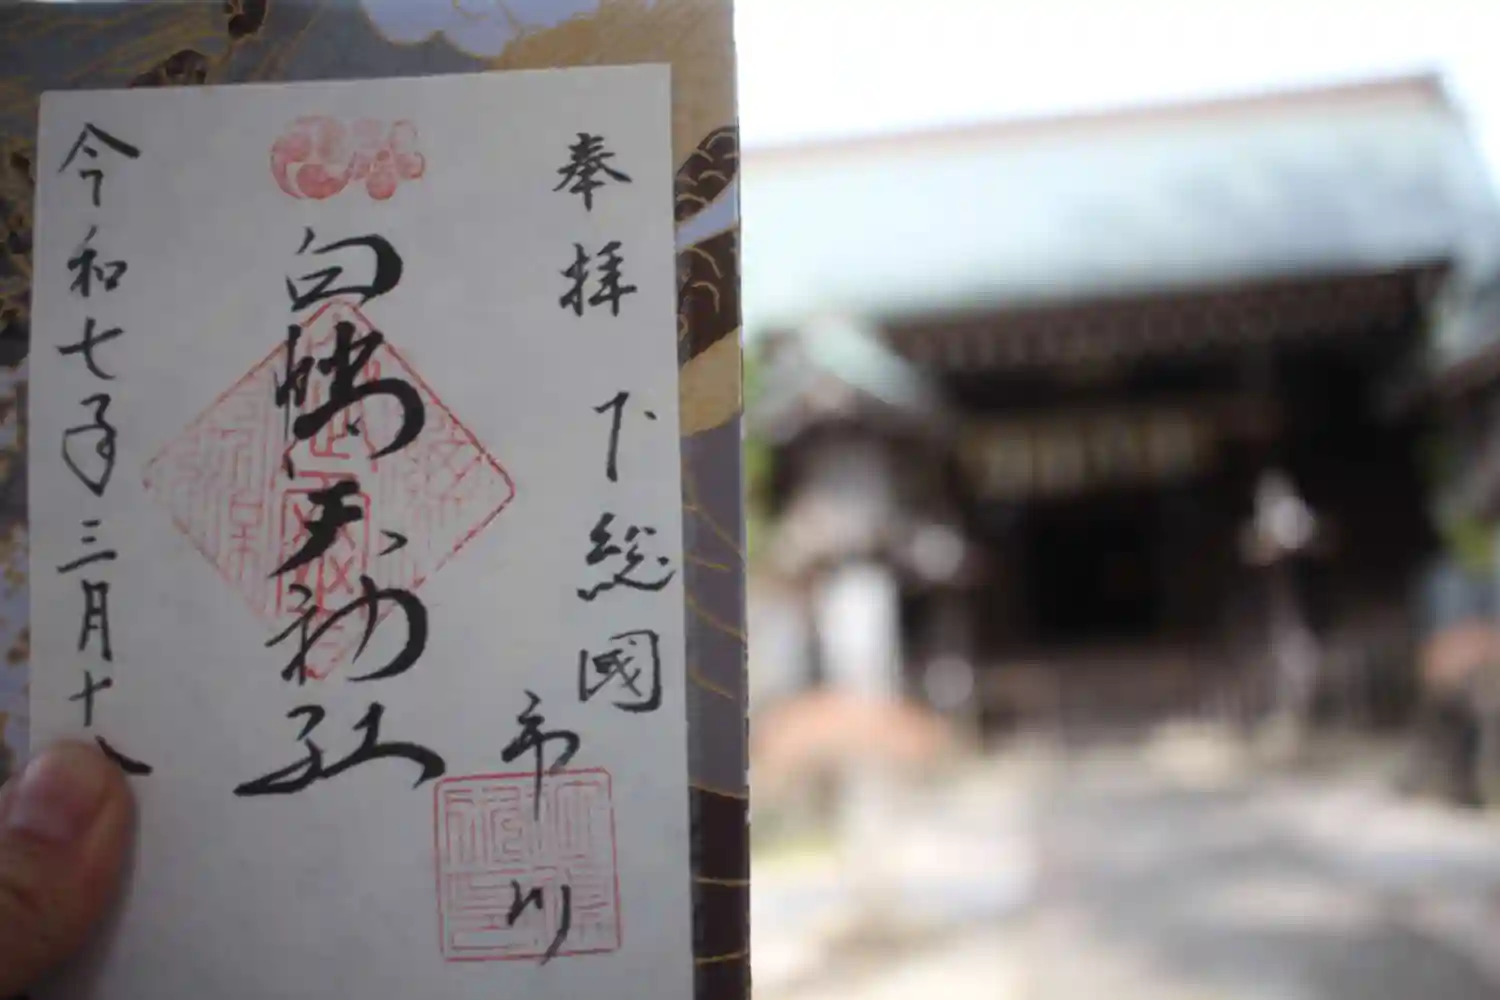 奉拝
下総國
市川
白幡天神社
令和七年三月十八